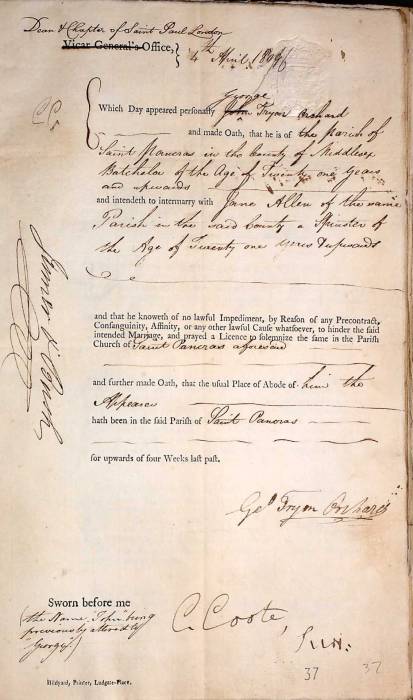 Dean & Chapter of Saint Paul London
Vicar General's Office,} 4th April
George
Which Day appeared personally John Fryon Orchard
and made Oath, that he is of the Parish of
Saint Pancras in the County of Middlesex
Batchelor of the Age of Twenty one Years
and upwards
and intendeth to intermarry with Jane Allen of the same
Parish in the said County a Spinster of
the Age of Twenty one Years & upwards
and that he knoweth of no lawful Impediment, by Reason of any Precontract,
Consanguinity, Affinity, or any other lawful Cause whatsoever, to hinder the said
intended Marriage, and prayed a Licence to solemnize the same in the Parish
Church of Saint Pancras aforesaid
and further made Oath, that the usual Place of Abode of him the
Appearer
hath been in the said Parish of Saint Pancras
for upwards of four Weeks last past.
Geo Fryon Orchard
Sworn before me
(the Name "John" being
previously altered to
"George".)
C. Coote,
Surr.
37
37
Hildyard, Printer, Ludgate-Place.